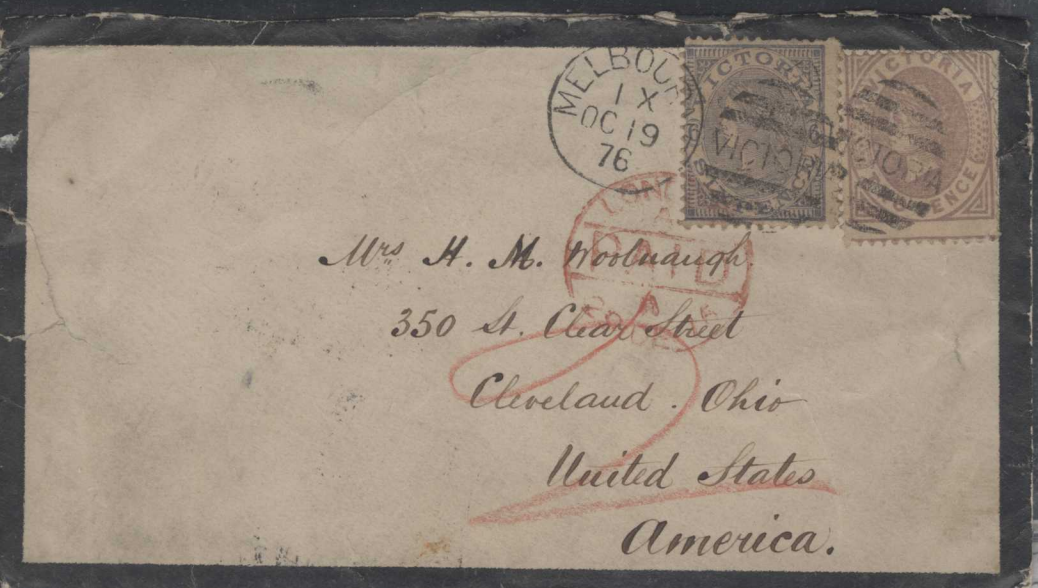 MELBOU
1 X
OC 19
76
VICTORIA
SIXPENCE
VICTORIA
VICTORIA
PENCE
TORIA
LON
PAID
Mrs H. M. Woolnaugh
350 St. Clear Street
2
Cleveland. Ohio
United States
America.